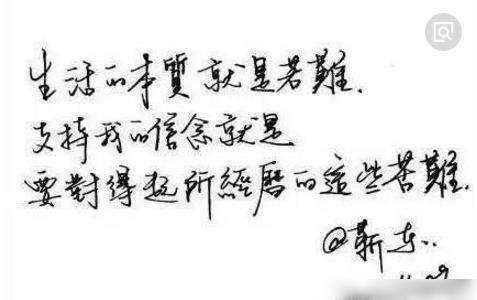 生活的本質就是苦難.
支持我的信念就是
要對得起所經歷的這些苦難.
@靳东..